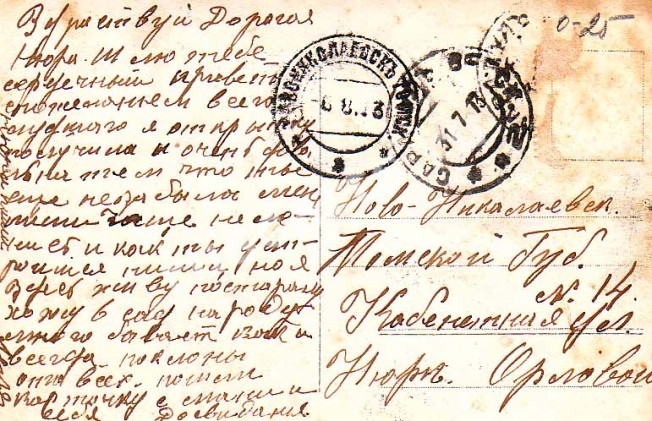 Здраствуй Дорогая
Нюра. Шлю тебе
сердечный привет с
пожеланием всего
я открытку
получила и очень
тем что ты
еще не забыла меня
пиши чаще не ле
и как ты уст-
роилась пиши но я
Здесь живу по старому
хожу в сад народу
много бывает как и
всегда поклоны
от всех. пошли
карточку с мамы и
себя Досвидания
НОВОНИКОЛАЕВСКЪ ТОМСК.
-6.8.13
САР
31 7 13
0-25
Ново-Николаевск.
Томской Губ.
№. 14.
Кабенетная ул.
Нюре. Орловой